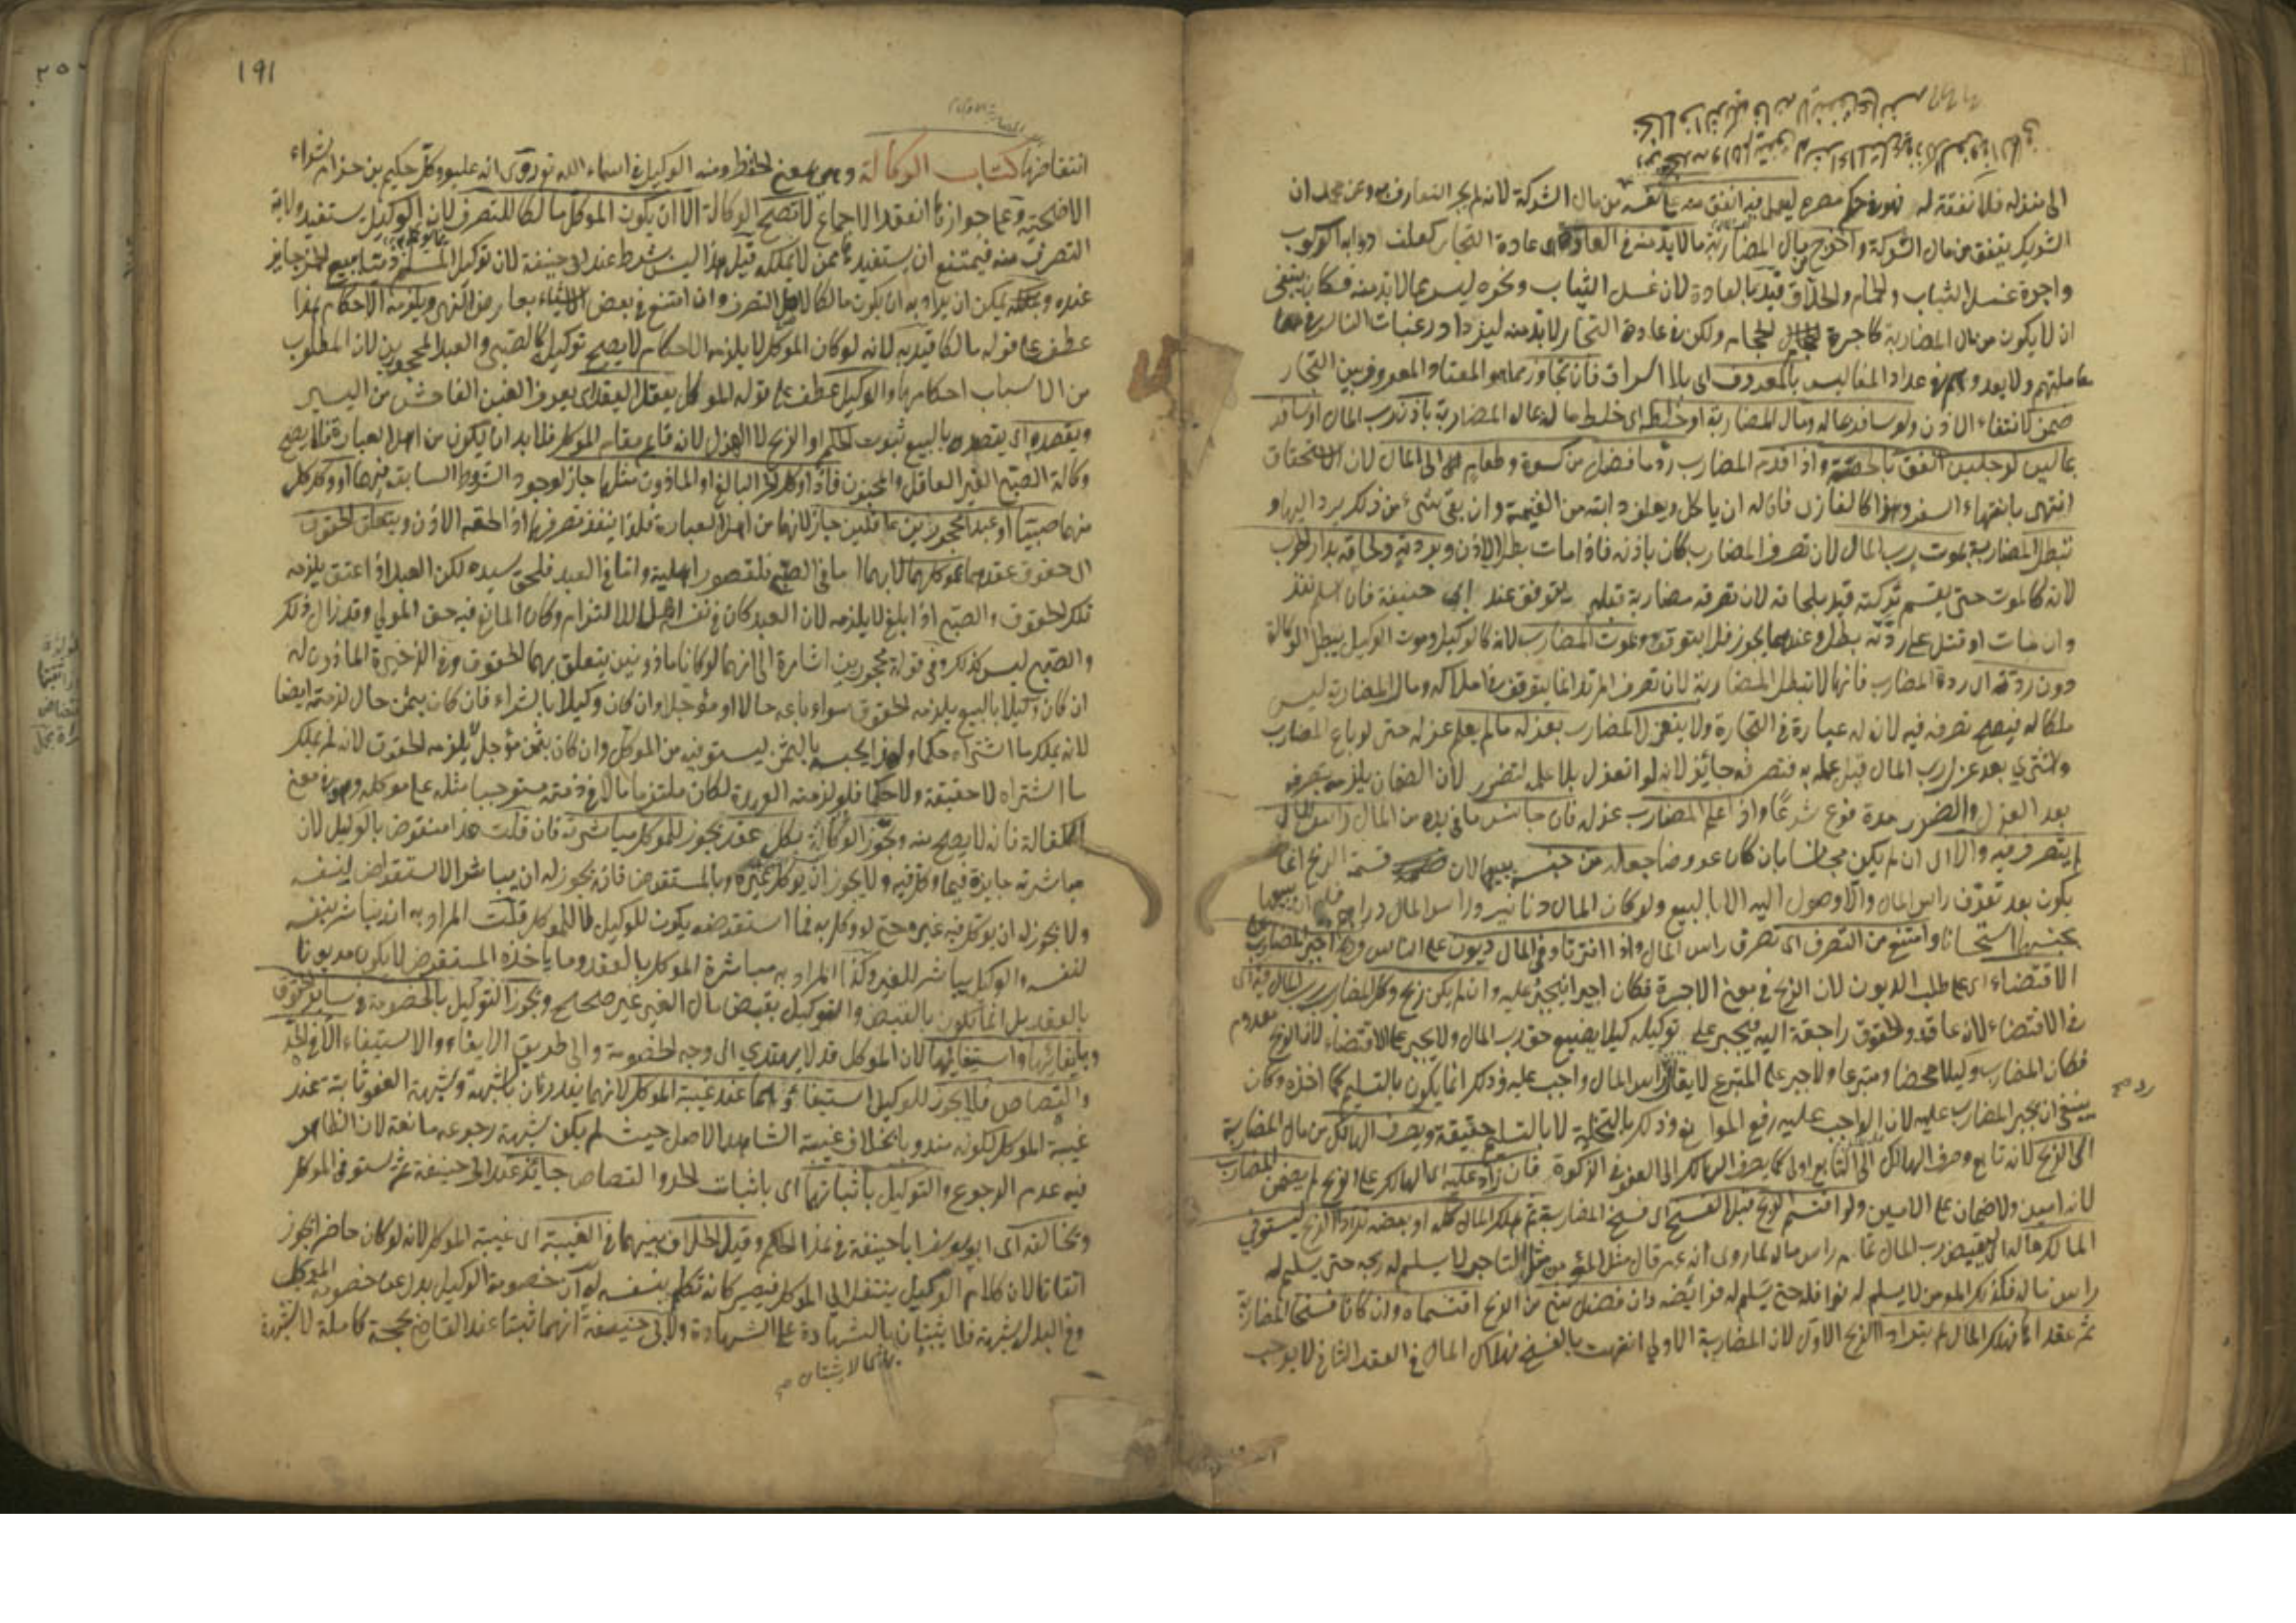 الى منزله فلا نفقة له
الشريك ينفق من مال الشركة واخرج بمال المضاربة ما لا بد منه في العادة اى عادة التجار كعلف دوابه الركوب
واجرة غسل الثياب والحمام والحلاق قيد بالعادة لان غسل الثياب ونحوه ليس مما لا بد منه فكان ينبغي
ان لا يكون من مال المضاربة كاجرة الحجام ولكن في عادة التجار لا بد منه ليزداد رغبات الناس في
معاملتهم ولا يعدوهم في عداد المفاليس بالمعروف اى بلا اسراف فان تجاوز عما هو المعتاد المعروف بين التجار
ضمن لانتفاء الاذن ولو سافر بماله ومال المضاربة او خلط اى خلط ماله بمال المضاربة باذن رب المال او سافر
بمالين لرجلين انفق بالحصة واذا قدم المضارب رد ما فضل من كسوة وطعام الى المال لان الاستحقاق
انتهى بانتهاء السفر وهذا كالغازى فان له ان ياكل ويعلف دابته من الغنيمة وان بقي شيء من ذلك يرد اليها و
تبطل المضاربة بموت رب المال لان تصرف المضارب كان باذنه فاذا مات بطل الاذن وبردته ولحاقه بدار الحرب
لانه كالموت حتى يقسم تركته قيد بلحاقه لان تصرفه مضاربة قبله يتوقف عند ابي حنيفة فان اسلم نفذ
وان مات او قتل على ردته بطل وعندهما يجوز فلا يتوقف وبموت المضارب لانه كالوكيل وموت الوكيل يبطل الوكالة
دون ردته اى ردة المضارب فانها لا تبطل المضاربة لان تصرف المرتد انما يتوقف في املاكه ومال المضاربة ليس
ملكا له فيصح تصرفه فيه لان له عبارة في التجارة ولا ينعزل المضارب بعزله ما لم يعلم عزله حتى لو باع المضارب
واشترى بعد عزل رب المال قبل علمه به فتصرفه جائز لانه لو انعزل بلا علمه لتضرر لان الضمان يلزمه بتصرفه
بعد العزل والضرر مدفوع شرعا واذا علم المضارب عزله فان جانس ما في يده من المال راس المال
لم يتصرف فيه والا اى ان لم يكن مجانسا بان كان عروضا جعله من جنسه ببيعها لان قسمة الربح انما
يكون بعد تعرف راس المال ولا وصول اليه الا بالبيع ولو كان المال دنانير وراس المال دراهم
بجنسها استحسانا وامتنع من التصرف اى تصرف راس المال واذا افترقا وفي المال ديون على الناس وربح اجبر المضارب على
الاقتضاء اى على طلب الديون لان الربح في معنى الاجرة فكان اجيرا فيجبر عليه وان لم يكن ربح وكل المضارب رب المال فيه اى
في الاقتضاء لانه عاقد والحقوق راجعة اليه فيجبر على توكيله كيلا يضيع حق رب المال ولا يجبر على الاقتضاء لان الربح معدوم
فكان المضارب وكيلا محضا ومتبرعا ولا جبر على المتبرع لا يقال راس المال واجب عليه وذلك انما يكون بالتسليم كما اخذه وكان
ينبغي ان يجبر المضارب عليه لان الواجب عليه رفع الموانع وذلك بالتخلية لا بالتسليم حقيقة ويصرف الهالك من مال المضاربة
الى الربح لانه تابع وصرف الهالك الى التابع اولى كما يصرف الهالك الى العفو في الزكوة فان زاد عليه اى الهالك على الربح لم يضمن المضارب
لانه امين ولا ضمان على الامين ولو اقتسم الربح قبل الفسخ اى فسخ المضاربة ثم هلك المال كله او بعضه ترادا الربح ليستوفي
المالك ماله اى ليقبض رب المال تمام راس ماله لما روى انه عم قال مثل المؤمن مثل التاجر لا يسلم له ربحه حتى يسلم له
راس ماله فكذلك المؤمن لا يسلم له نوافله حتى يسلم له فرائضه وان فضل شيء من الربح اقتسماه وان كانا فسخا المضاربة
ثم عقدا فهلك المال لم يترادا الربح الاول لان المضاربة الاولى انتهت بالفسخ فهلاك المال في العقد الثاني لا يوجب
رد صح
١٩١
انتقاضها كتاب الوكالة وهي في معنى الحفظ ومنه الوكيل في اسماء الله تع روى انه عليه وكل حكيم بن حزام بشراء
الاضحية وعلى جوازها انعقد الاجماع لا تصح الوكالة الا ان يكون الموكل مالكا للتصرف لان الوكيل يستفيد ولاية
التصرف منه فيمتنع ان يستفيدها ممن لا يملكه قيل هذا ليس بشرط عند ابي حنيفة لان توكيل المسلم ذميا ببيع الخمر جايز
عنده ويمكن ان يراد به ان يكون مالكا لاصل التصرف وان امتنع في بعض الاشياء بعارض النهي ويلزمه الاحكام هذا
عطف على قوله مالكا قيد به لانه لو كان الموكل لا يلزمه الاحكام لا يصح توكيله كالصبي والعبد المحجورين لان المطلوب
من الاسباب احكامها والوكيل عطف على قوله الموكل يعقل العقد اى يعرف الغبن الفاحش من اليسير
ويقصده اى يقصد بالبيع ثبوت الحكم او الربح لا الهزل لانه قايم مقام الموكل فلا بد ان يكون من اهل العبارة فلا يصح
وكالة الصبي الغير العاقل والمجنون فاذا وكل الحر البالغ او الماذون مثلهما جاز لوجود الشروط السابقة فيهما او وكل كل
منهما صبيا او عبدا محجورين عاقلين جاز لانهما من اهل العبارة فلذا ينفذ تصرفهما اذا لحقه الاذن ويتعلق الحقوق
اى حقوق عقدهما بموكلهما لا بهما اما في الصبي فلقصور اهليته واما في العبد فلحق سيده لكن العبد اذا اعتق يلزمه
تلك الحقوق والصبي اذا بلغ لا يلزمه لان العبد كان في نفسه اهلا للالتزام وكان المانع فيه حق المولى وقد زال ذلك
والصبي ليس كذلك وفي قوله محجورين اشارة الى انهما لو كانا ماذونين يتعلق بهما الحقوق وفي الذخيرة الماذون له
ان كان وكيلا بالبيع يلزمه الحقوق سواء باع حالا او مؤجلا وان كان وكيلا بالشراء فان كان بثمن حال لزمته ايضا
لانه يملك ما اشتراه حكما ولهذا يحبسه بالثمن ليستوفيه من الموكل وان كان بثمن مؤجل لا يلزمه الحقوق لانه لم يملك
ما اشتراه لا حقيقة ولا حكما فلو لزمته العهدة لكان ملتزما مالا في ذمته مستوجبا مثله على موكله وهو في معنى
الكفالة فانه لا يصح منه ويجوز الوكالة بكل عقد يجوز للموكل مباشرته فان قلت هذا منقوض بالوكيل لان
مباشرته جايزة فيما وكل فيه ولا يجوز ان يوكل غيره وبالمستقرض فانه يجوز له ان يباشر الاستقراض لنفسه
ولا يجوز له ان يوكل فيه غيره حتى لو وكل به فما استقرضه يكون للوكيل لا للموكل قلت المراد به ان يباشر بنفسه
لنفسه والوكيل يباشر للغير وكذا المراد به مباشرة الموكل بالعقد وما ياخذه المستقرض لا يكون مديونا
بالعقد بل انما يكون بالقبض والتوكيل بقبض مال الغير غير صحيح ويجوز التوكيل بالخصومة في ساير الحقوق
وبايفائها واستيفائها لان الموكل قد لا يهتدي الى وجه الخصومة والى طريق الايفاء والاستيفاء الا في الحد
والقصاص فلا يجوز للوكيل استيفاؤهما عند غيبة الموكل لانهما يندرئان بالشبهة وشبهة العفو ثابتة عند
غيبة الموكل لكونه مندوبا بخلاف غيبة الشاهد الاصل حيث لم يكن شبهة رجوعه مانعة لان الظاهر
فيه عدم الرجوع والتوكيل باثباتهما اى باثبات الحد والقصاص جائز عند ابي حنيفة ثم يستوفي الموكل
ويخالفه اى ابو يوسف ابا حنيفة في هذا الحكم وقيل الخلاف بينهما في الغيبة اى غيبة الموكل لانه لو كان حاضرا يجوز
اتفاقا لان كلام الوكيل ينتقل الى الموكل فيصير كانه تكلم بنفسه له ان خصومة الوكيل بدل عن خصومة الموكل
وفي البدل شبهة فلا يثبتان بالشهادة على الشهادة ولابي حنيفة انهما ثبتا عند القاضي بحجة كاملة لا شبهة
لا يثبتان صح